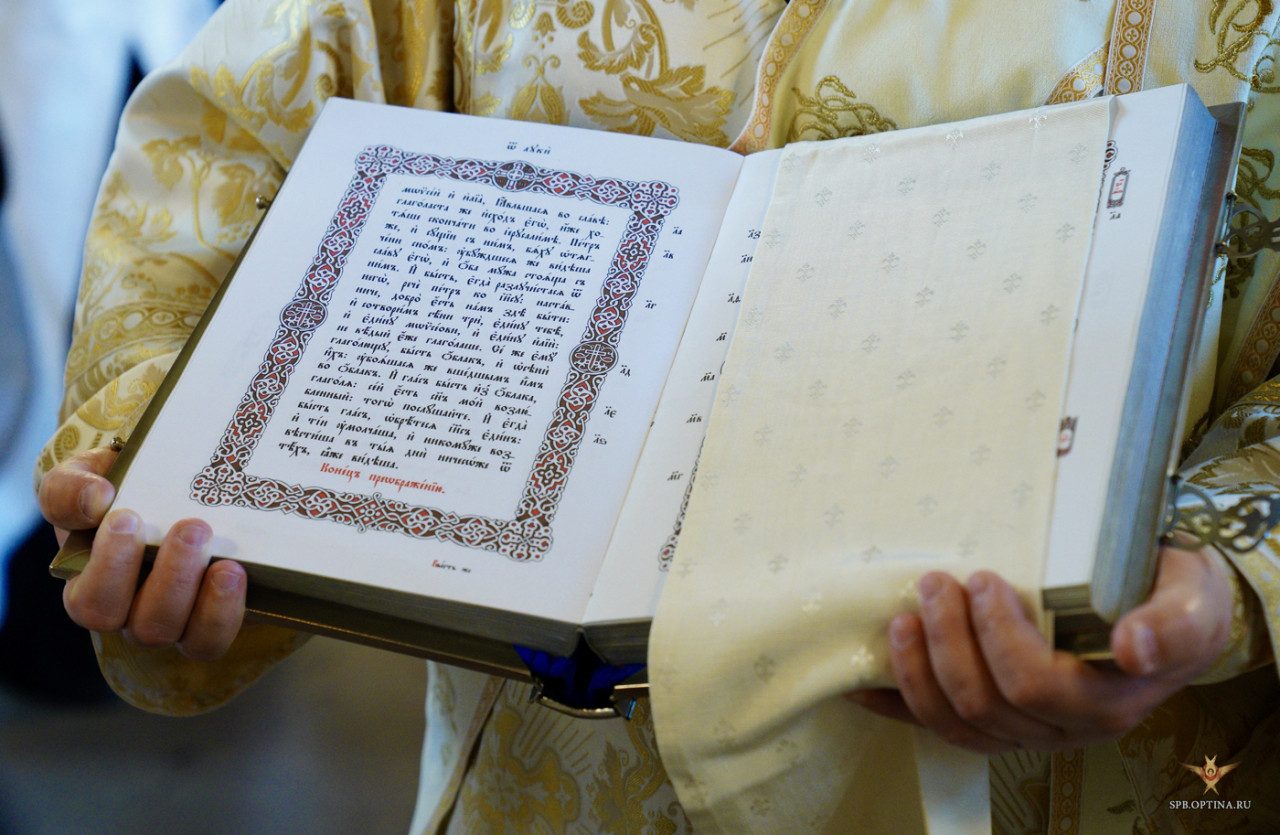 Ѿ лꙋкѝ
мѡѷсе́й и҆ и҆лїа̀, Ꙗ҆́вльшасѧ во сла́вѣ:
глаго́ласта же и҆схо́дъ є҆гѡ̀, є҆го́же хо-
тѧ́ше сконча́ти во і҆ерⷭ҇ли́мѣ. Пе́тръ
же, и҆ сꙋ́щїи съ ни́мъ, бѧ́хꙋ ѡ҆тѧг-
че́ни сно́мъ: ᲂу҆бꙋ́ждшесѧ же ви́дѣша
сла́вꙋ є҆гѡ̀, и҆ ѻ҆́ба мꙋ̑жа стоѧ̑ща съ
ни́мъ. И҆ бы́сть, є҆гда̀ разлꙋчи́стасѧ ѿ
негѡ̀, речѐ пе́тръ ко і҆и҃сꙋ: наста́в-
ниче, добро̀ є҆́сть на́мъ здѣ̀ бы́ти:
и҆ сотвори́мъ сѣ̑ни трѝ, є҆ди́нꙋ тебѣ̀,
и҆ є҆ди́нꙋ мѡѷсе́ови, и҆ є҆ди́нꙋ и҆лїѝ:
не вѣ́дый є҆́же глаго́лаше. Се́ же є҆мꙋ̀
глаго́лющꙋ, бы́сть ѻ҆́блакъ, и҆ ѡ҆сѣнѝ
и҆̀хъ: ᲂу҆боѧ́шасѧ же вше́дшымъ и҆̀мъ
во ѻ҆́блакъ. И҆ гла́съ бы́сть и҆з̾ ѻ҆́блака,
глаго́лѧ: се́й є҆́сть сн҃ъ мо́й возлю́б-
ленный: тогѡ̀ послꙋ́шайте. И҆ є҆гда̀
бы́сть гла́съ, ѡ҆брѣ́тесѧ і҆и҃съ є҆ди́нъ:
и҆ ті́и ᲂу҆молча́ша, и҆ никомꙋ́же воз-
вѣсти́ша въ ты̑ѧ дни̑ ничесѡ́же ѿ
тѣ́хъ, ꙗ҆̀же ви́дѣша.
Коне́цъ преѡбраже́нїю.
Бы́сть же
л҃а
л҃в
л҃г
л҃д
л҃є
л҃ѕ
SPB.OPTINA.RU